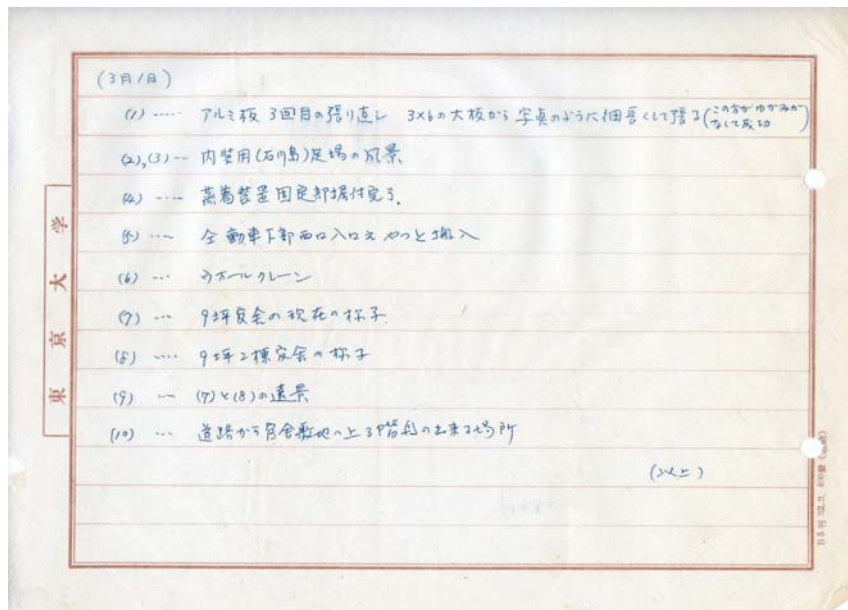 (3月1日)
(1) ····· アルミ板 3回目の張り直し 3×6の大板から写真のように細長くして張る(この方がゆがみがなくて成功)
(2),(3)-- 内装用(石川島)足場の風景
(4) ---- 蒸着装置固定部据付完了.
(5) ---- 動車下部西口入口え やっと搬入
(6) --- クレーン
(7) --- 9坪官舎の現在の様子.
(8) ---- 9坪2棟官舎の様子
(9) --- (7)と(8)の遠景
(10) --- 道路から官舎敷地へ上る階段の出来る場所
(以上)
東京大学